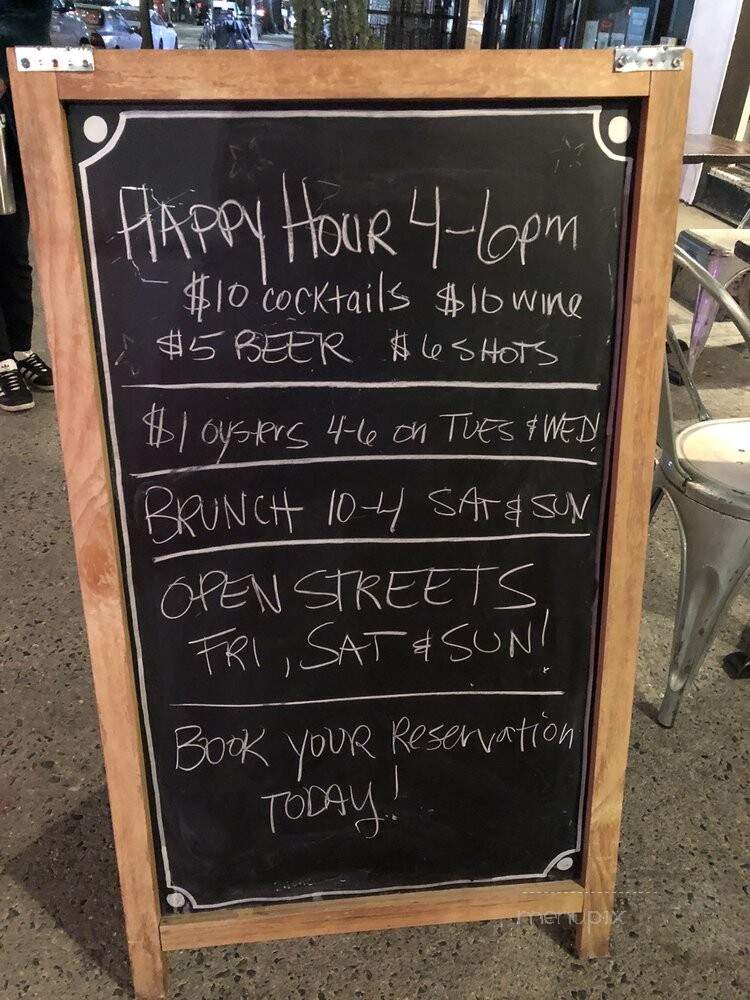 HAPPY HOUR 4-6pm
$10 cocktails $10 wine
$5 BEER $6 SHOTS
$1 oysters 4-6 on TUES & WED!
BRUNCH 10-4 SAT & SUN
OPEN STREETS
FRI, SAT & SUN!
BOOK YOUR Reservation
TODAY!
menupix